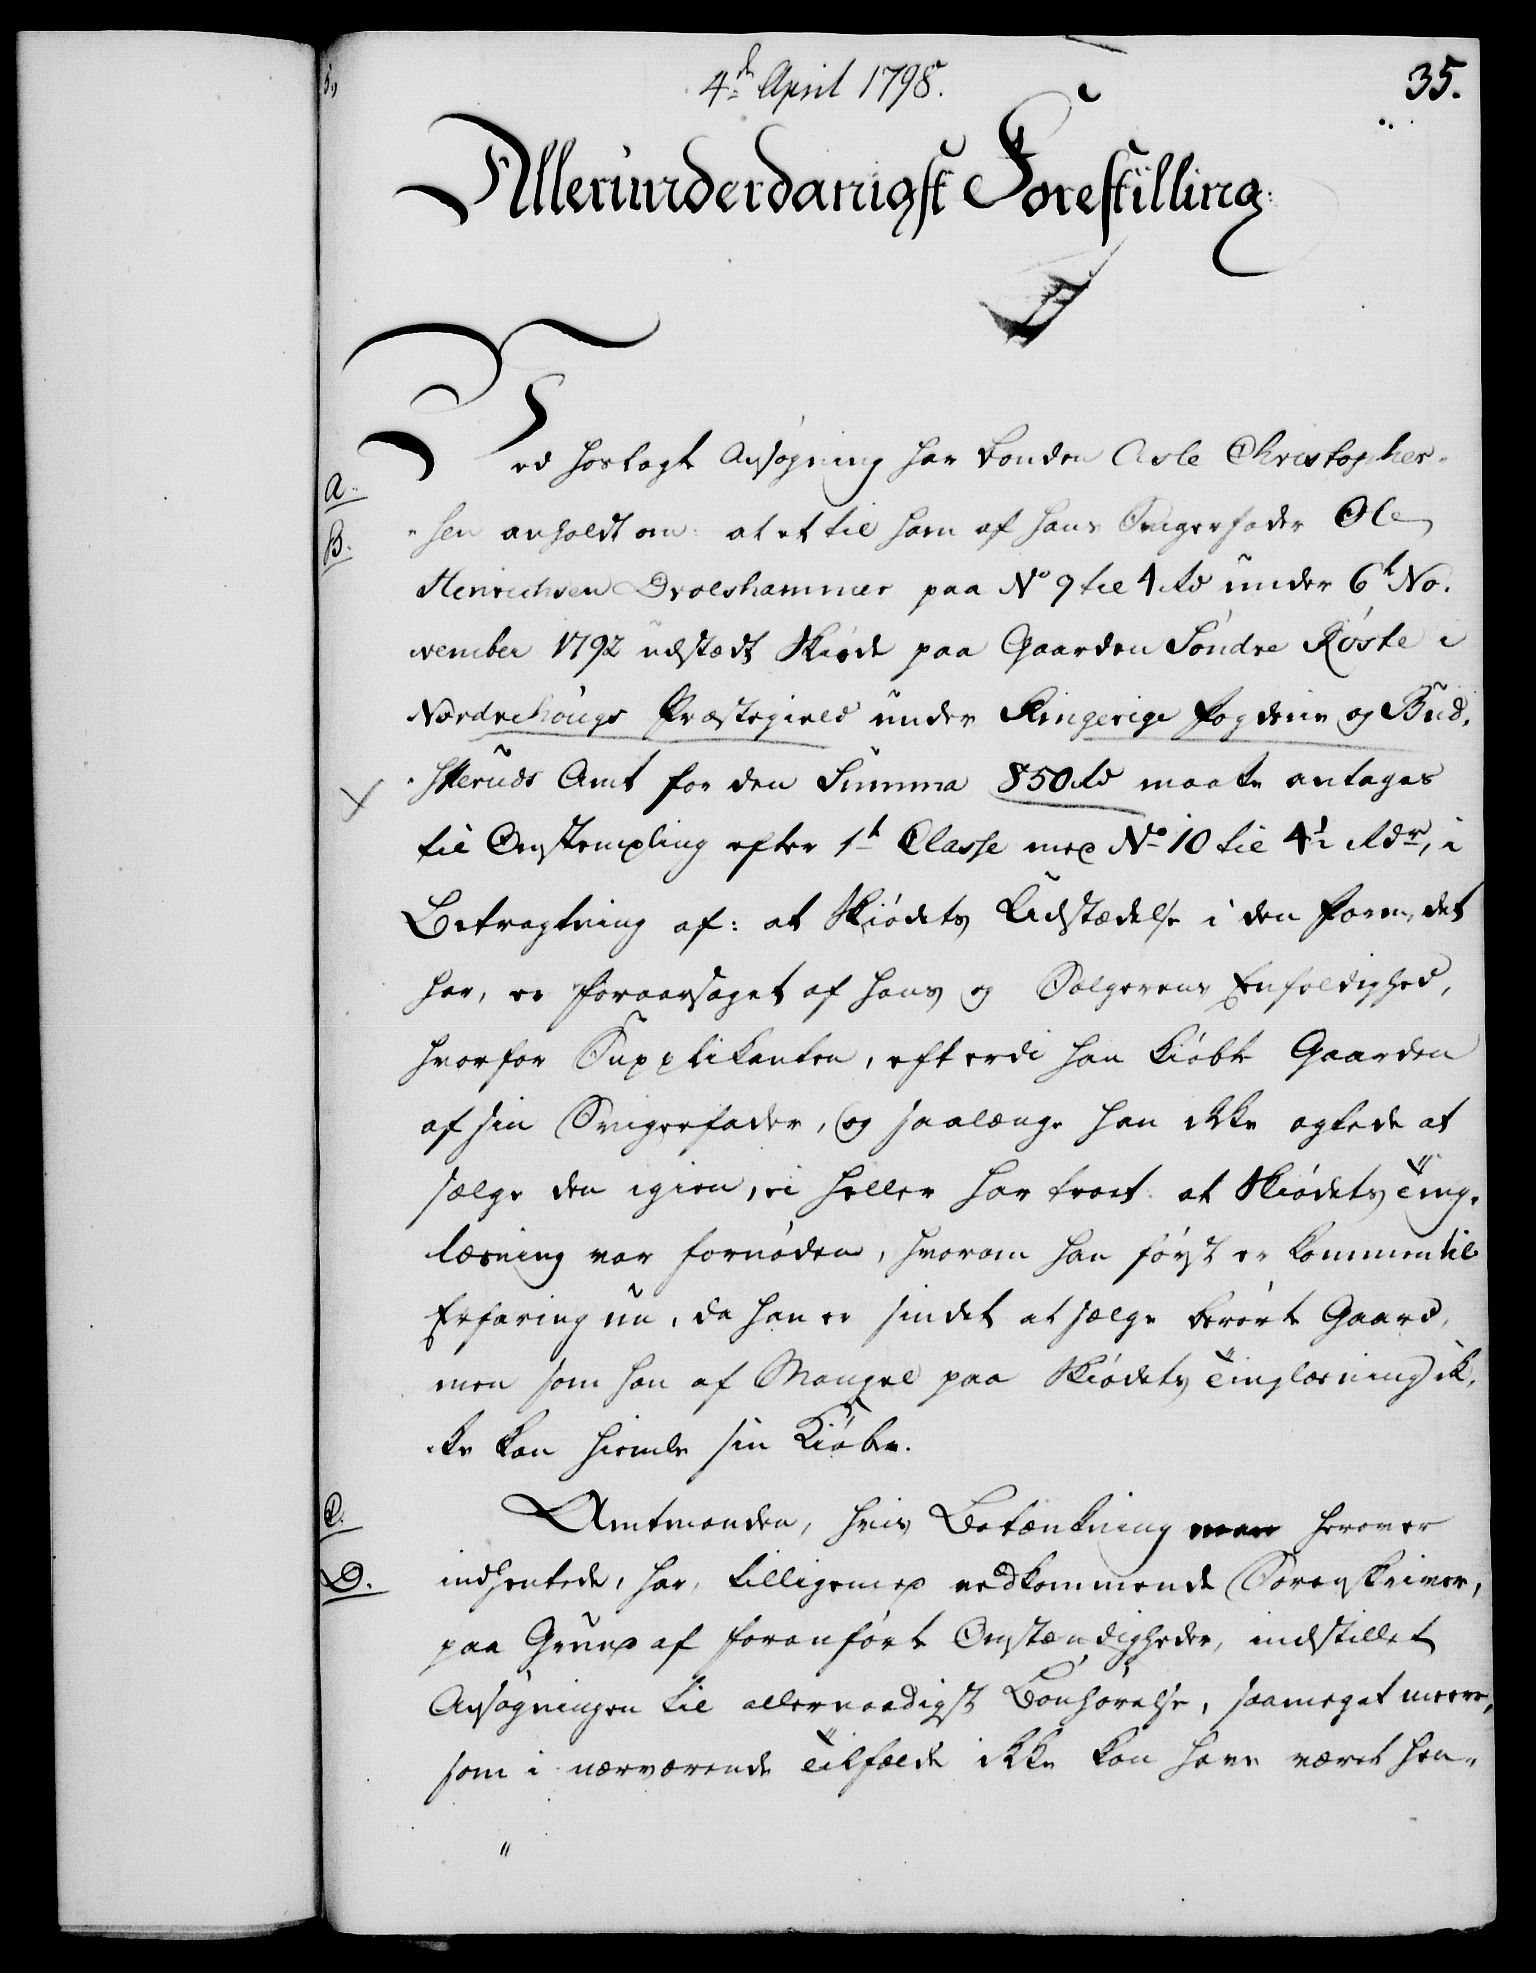 4de April 1798.
35.
Allerunderdanigst Forestilling.
Ved hoslagt Ansøgning har Bonden Asle Christopher-
A.
-sen anholdt om: at et til ham af hans Svigerfader Ole
B.
Henrichsen Drolshammer paa No 9 til 4 rd under 6te No-
vember 1792 udstædt Skiøde paa Gaarden Søndre Røste i
Nordrehougs Præstegield under Ringerige Fogderie og Bud-
-skeruds Amt for den Summa 850 rd maate antages
til Omstempling efter 1te Classe med No 10 til 4½ rdr, i
Betragtning af: at Skiødets Udstædelse i den Form, det
har, er foraarsaget af hans og Sælgerens Eenfoldighed,
hvorfor Supplikanten, efterdi han kiøbte Gaarden
af sin Svigerfader, og saalænge han ikke agtede at
sælge den igien, ei heller har troet at Skiødets Ting-
læsning var fornøden, hvorom han først er kommen til
Erfaring nu, da han er sindet at sælge berørte Gaard,
men som han af Mangel paa Skiødets Tinglæsning ik-
-ke kan hiemle sin Kiøber.
C.
Amtmanden, hvis Betænkning man herover
D.
indhentede, har, tilligemed vedkommende Sorenskriver,
paa Grund af foranførte Omstændigheder, indstillet
Ansøgningen til allernaadigst Bønhørelse, saameget meere,
som i nærværende Tilfælde ikke kan have været hen-
"